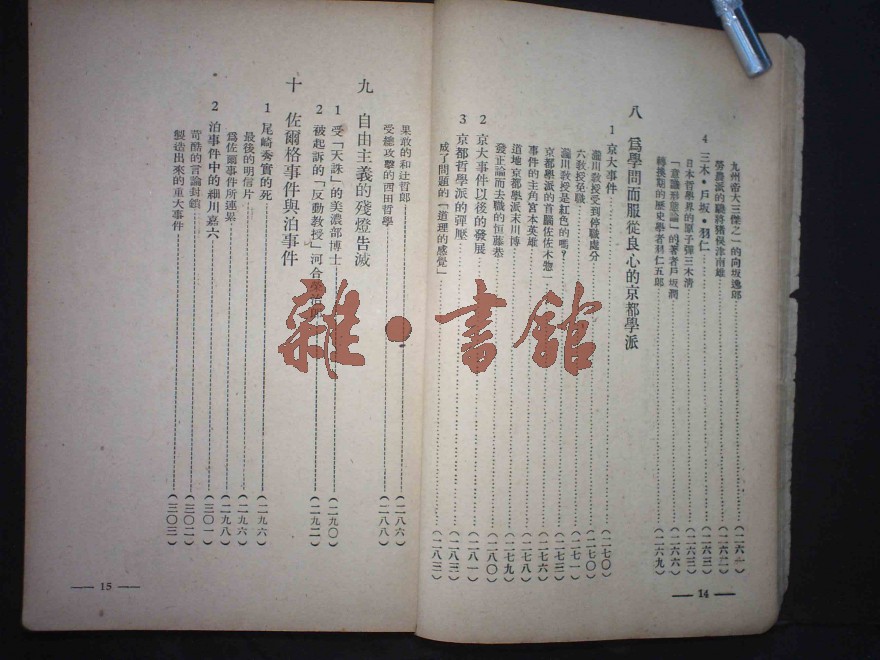 九州帝大三傑之一的向坂逸郎……(二六一)
勞農派的驍將猪俣津南雄……(二六二)
4 三木・戶坂・羽仁……(二六三)
日本哲學界的原子彈三木淸……(二六三)
「意識形態論」的著者戶坂潤……(二六六)
轉換期的歷史學者羽仁五郎……(二六九)
八 爲學問而服從良心的京都學派
1 京大事件……(二七〇)
瀧川敎授受到停職處分……(二七〇)
六敎授免職……(二七一)
瀧川敎授是紅色的嗎?……(二七三)
京都學派的首腦佐佐木惣一……(二七六)
事件的主角宮本英雄……(二七八)
道地京都學派末川博……(二七九)
發正論而去職的恒藤恭……(二八〇)
2 京大事件以後的發展……(二八一)
3 京都哲學派的彈壓……(二八三)
成了問題的「道理的感覺」……(二八三)
— 14 —
果敢的和辻哲郎……(二八六)
受總攻擊的西田哲學……(二八八)
九 自由主義的殘燈吿滅
1 受「天誅」的美濃部博士……(二九〇)
2 被起訴的「反動敎授」河合榮治郎……(二九二)
十 佐爾格事件與泊事件
1 尾崎秀實的死……(二九六)
最後的明信片……(二九六)
爲佐爾事件所連累……(二九八)
2 泊事件中的細川嘉六……(三〇一)
苛酷的言論封鎖……(三〇二)
製造出來的重大事件……(三〇三)
— 15 —
雜・書館